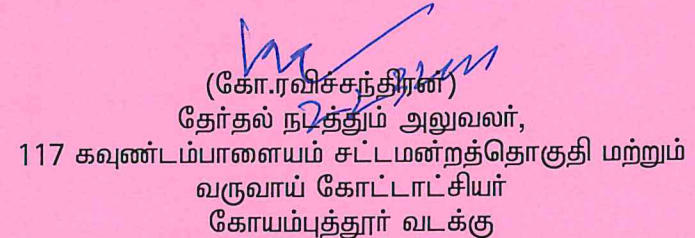 (கோ.ரவிச்சந்திரன்)
தேர்தல் நடத்தும் அலுவலர்,
117 கவுண்டம்பாளையம் சட்டமன்றத்தொகுதி மற்றும்
வருவாய் கோட்டாட்சியர்
கோயம்புத்தூர் வடக்கு